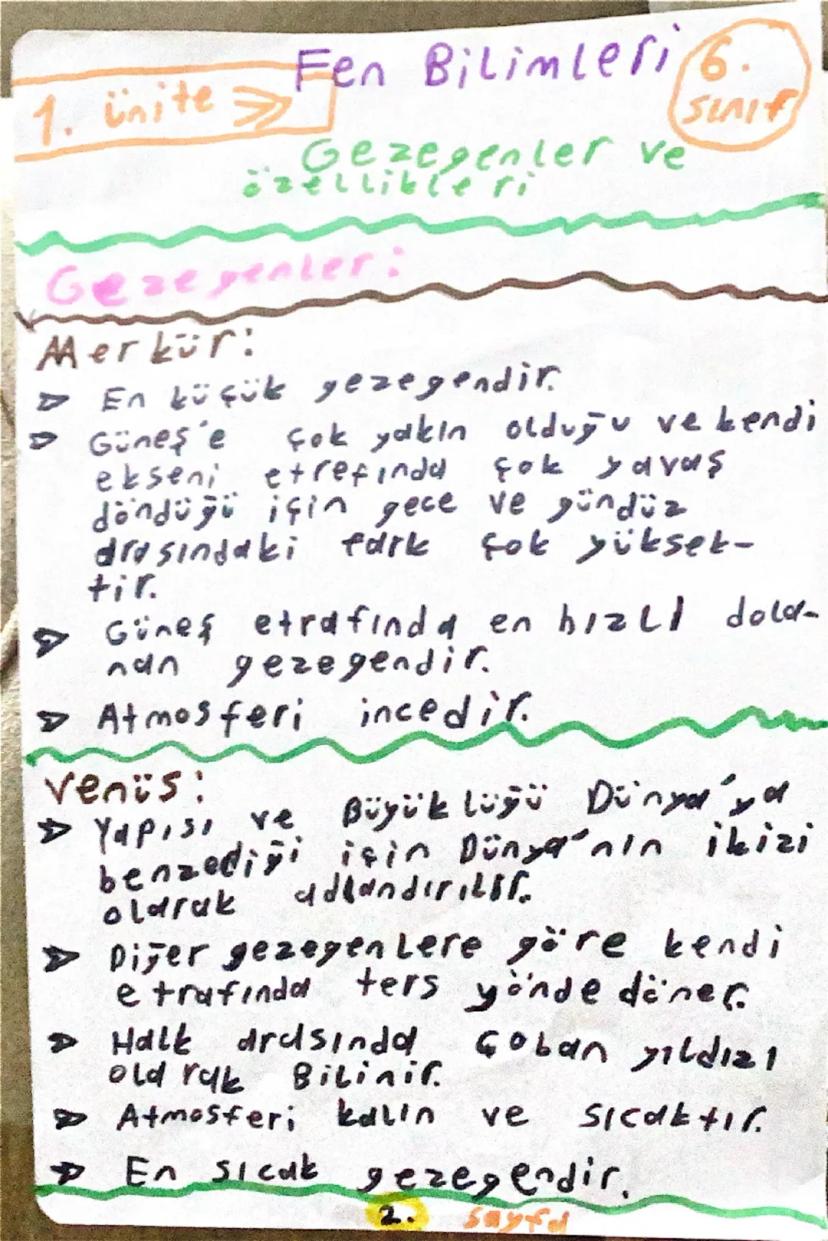 Fen Bilimleri
6.
sınıf
1. ünite
Gezegenler ve
özellikleri
Gezegenler:
Merkür:
En küçük gezegendir.
Güneş'e çok yakın olduğu ve kendi
ekseni etrefında çok yavaş
döndüğü için gece ve gündüz
arasındaki fark çok yüksek-
tir.
Güneş etrafında en hızlı dola-
nan gezegendir.
Atmosferi incedir.
Venüs:
Yapısı ve Büyüklüğü Dünya'ya
benzediği için Dünya'nın ikizi
olarak adlandırılır.
Diğer gezegenlere göre kendi
etrafında ters yönde döner.
Halk arasında Çoban yıldızı
olarak Bilinir.
Atmosferi kalın ve sıcaktır.
En sıcak gezegendir.
2. sayfa